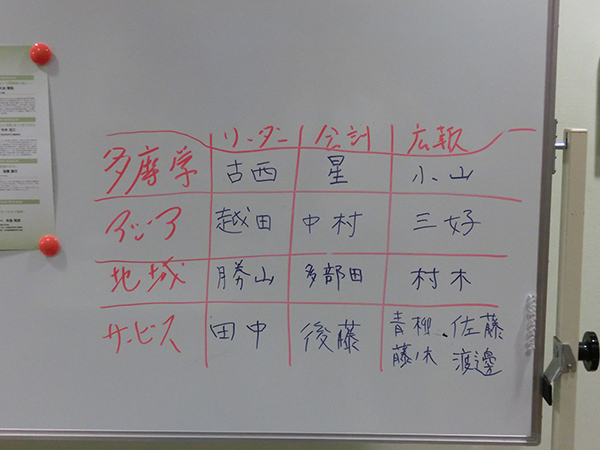 リーダー 会計 広報
多摩学 古西 星 小山
アジア 越田 中村 三好
地域 勝山 多部田 村木
サービス 田中 後藤 青柳、佐藤
藤木 渡邊